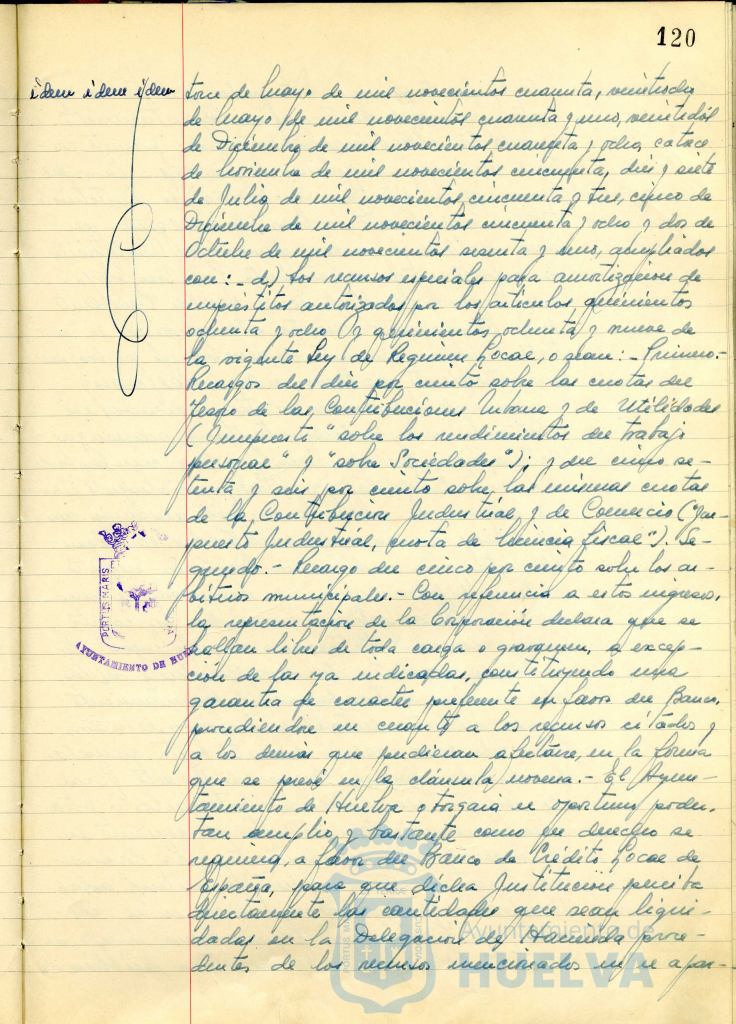 120
idem idem idem
torce de Mayo de mil novecientos cuarenta, veintiocho
de Mayo de mil novecientos cuarenta y uno, veintidós
de Diciembre de mil novecientos cuarenta y ocho, catorce
de Noviembre de mil novecientos cincuenta, diez y siete
de Julio de mil novecientos cincuenta y tres, cinco de
Diciembre de mil novecientos cincuenta y ocho y dos de
Octubre de mil novecientos sesenta y uno, ampliados
con: - d) Los recursos especiales para amortización de
empréstitos autorizados por los artículos quinientos
ochenta y ocho y quinientos ochenta y nueve de
la vigente Ley de Regimen Local, o sean: - Primero.-
Recargos del diez por ciento sobre las cuotas del
Tesoro de las Contribuciones Urbana y de Utilidades
(Impuesto "sobre los rendimientos del trabajo
personal" y "sobre Sociedades"); y del cinco se-
tenta y seis por ciento sobre las mismas cuotas
de la Contribución Industrial y de Comercio ("Im-
puesto Industrial, cuota de licencia fiscal"). Se-
gundo. - Recargo del cinco por ciento sobre los ar-
bitrios municipales. - Con referencia a estos ingresos,
la representación de la Corporación declara que se
hallan libre de toda carga o gravamen, a excep-
ción de las ya indicadas, constituyendo una
garantía de caracter preferente en favor del Banco,
procediendose en cuanto a los recursos citados y
a los demás que pudieran afectarse, en la forma
que se prevé en la cláusula novena. - El Ayun-
tamiento de Huelva otorgará el oportuno poder,
tan amplio y bastante como en derecho se
requiera, a favor del Banco de Crédito Local de
España, para que dicha Institución perciba
directamente las cantidades que sean liqui-
dadas en la Delegación de Hacienda proce-
dentes de los recursos mencionados en el apar-
PORTUS MARIS
AYUNTAMIENTO DE HUELVA
Ayuntamiento de
HUELVA